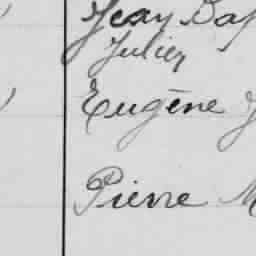 Jean Bap
Julien
Eugène J
Pierre M